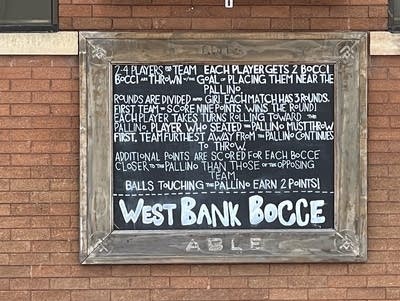 2-4 PLAYERS PER TEAM EACH PLAYER GETS 2 BOCCI
BOCCI ARE THROWN W/THE GOAL OF PLACING THEM NEAR THE
PALLINO.
ROUNDS ARE DIVIDED EACH MATCH HAS 3 ROUNDS.
FIRST TEAM SCORE NINE POINTS WINS THE ROUND!
EACH PLAYER TAKES TURNS ROLLING TOWARD THE
PALLINO. PLAYER WHO SEATED THE PALLINO MUST THROW
FIRST. TEAM FURTHEST AWAY FROM THE PALLINO CONTINUES
TO THROW.
ADDITIONAL POINTS ARE SCORED FOR EACH BOCCE
CLOSER TO THE PALLINO THAN THOSE OF THE OPPOSING
TEAM.
BALLS TOUCHING THE PALLINO EARN 2 POINTS!
WEST BANK BOCCE
ABLE